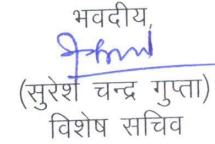 भवदीय,
(सुरेश चन्द्र गुप्ता)
विशेष सचिव